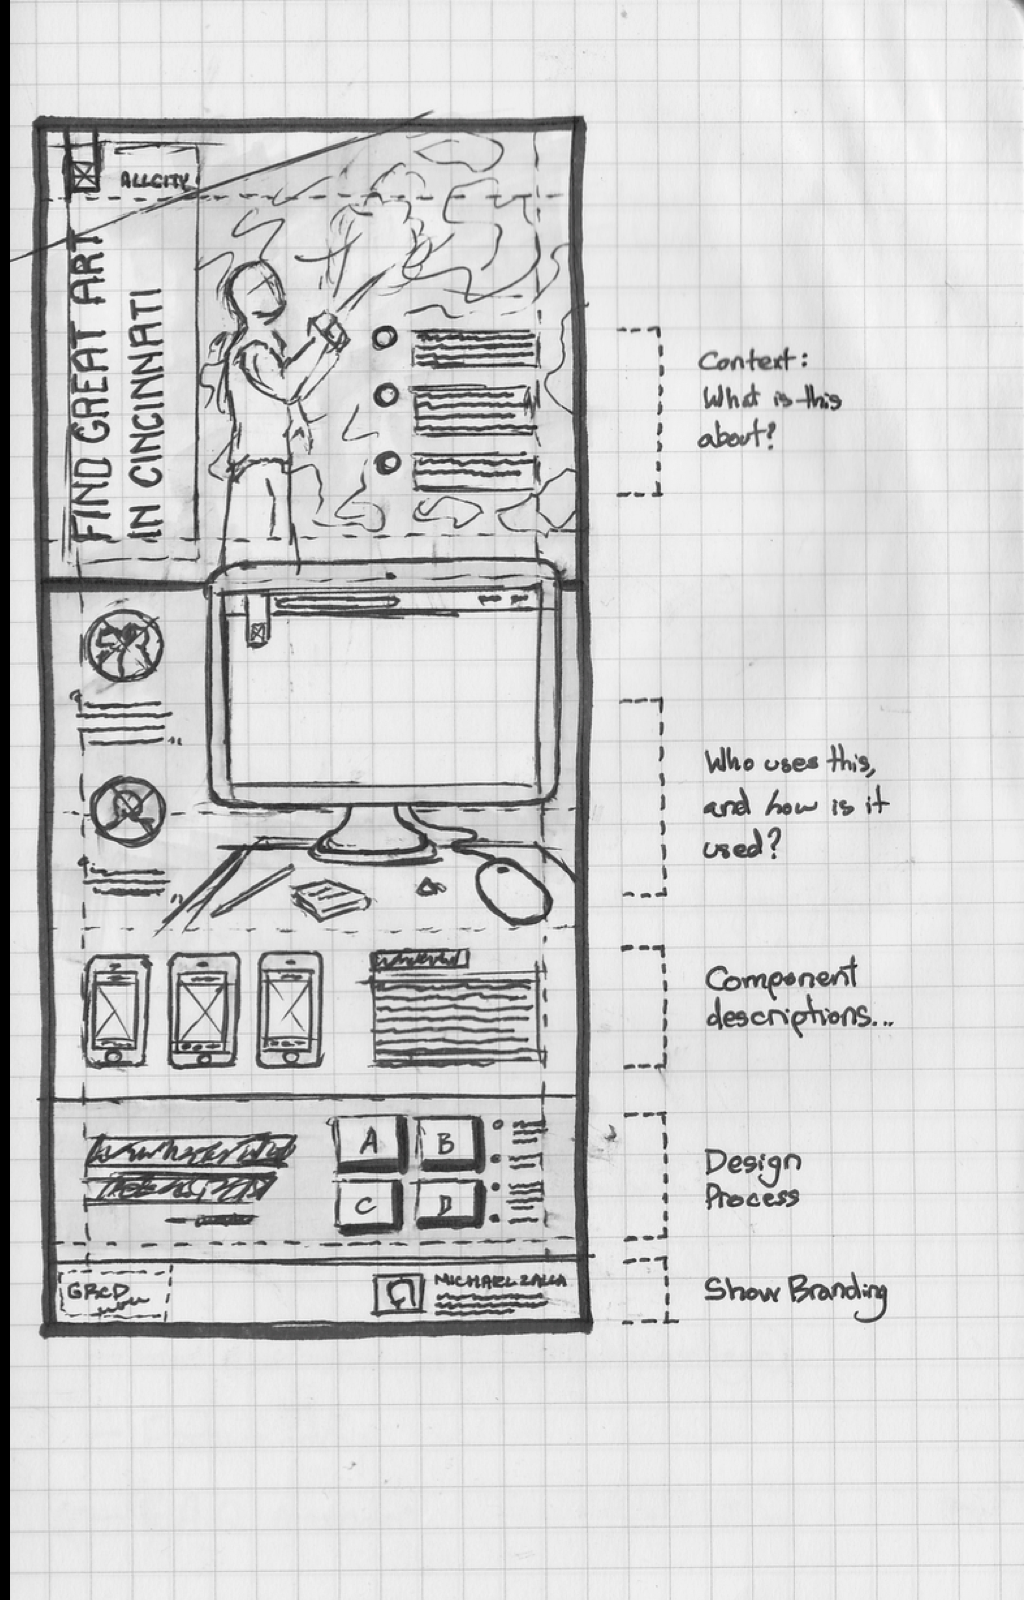 ALLCITY
FIND GREAT ART
IN CINCINNATI
Context:
What is this
about?
Who uses this,
and how is it
used?
Component
descriptions...
A
B
C
D
Design
Process
GRCD
MICHAEL ZALLA
Show Branding